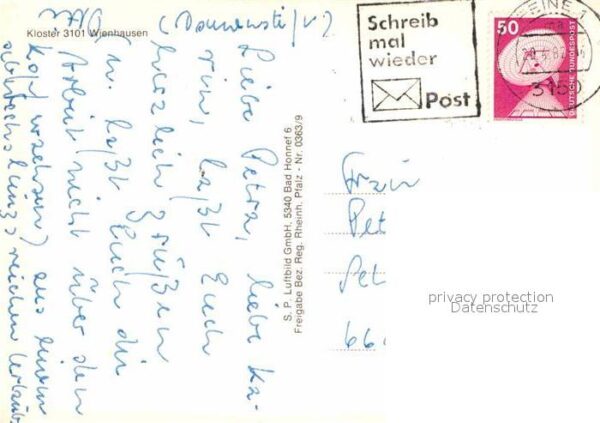 Kloster 3101 Wienhausen
(Donnerstag)
Liebe Petra, liebe Ka-
rin, laßt Euch
herzlich grüßen
u. laßt Euch die
Arbeit nicht über den
Kopf wachsen) aus einem
abwechslungsreichen Urlaub.
S. P. Luftbild GmbH. 5340 Bad Honnef 6
Freigabe Bez. Reg. Rheinh. Pfalz - Nr. 0363/9
Schreib
mal
wieder
Post
50
DEUTSCHE BUNDESPOST
PEINE 1
3150
Frau
Pet
Pet
66
privacy protection
Datenschutz